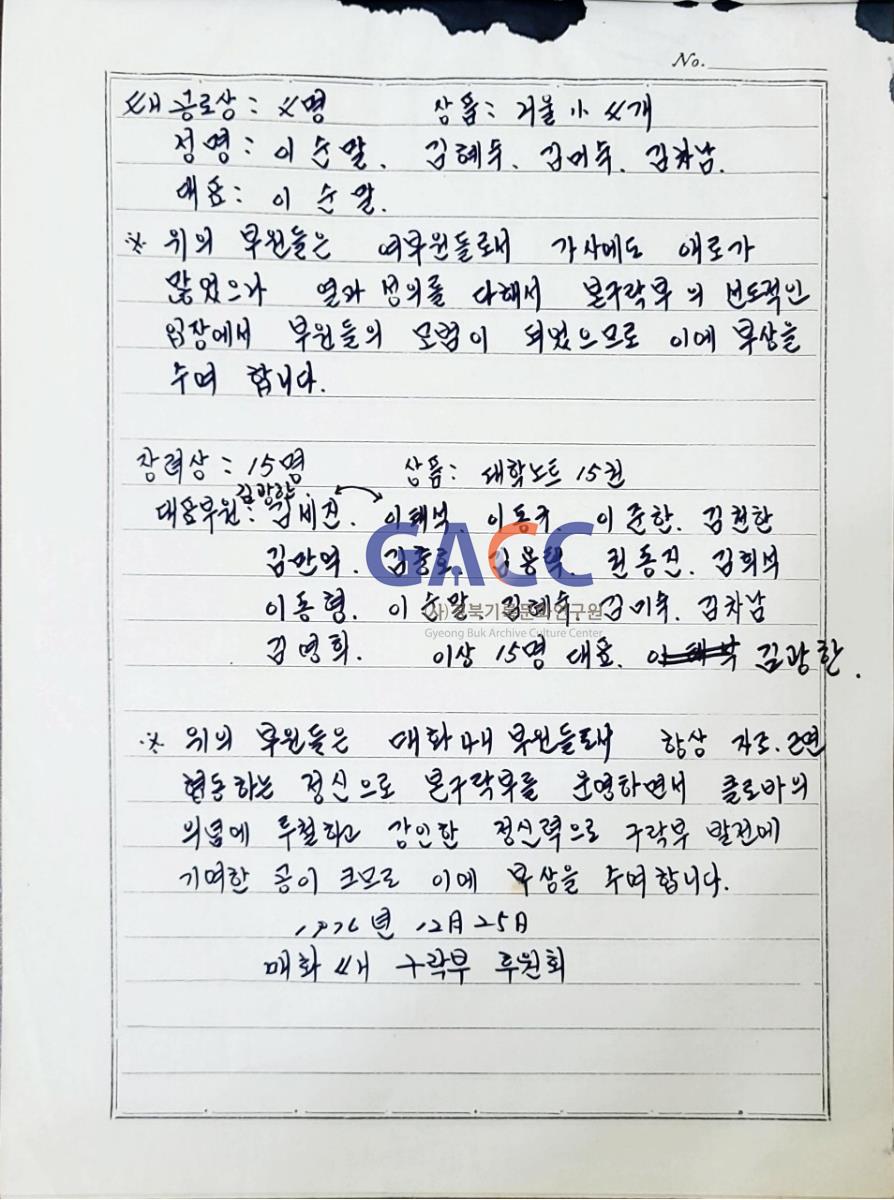 No.
4H 공로상: 4명 상품: 거울 小 4개
성명: 이순말. 김혜숙. 김미숙. 김차남.
대표: 이순말.
※ 위의 부원들은 여부원들로서 가사에도 애로가
많었으나 열과 성의를 다해서 본구락부의 선도적인
입장에서 부원들의 모범이 되었으므로 이에 부상을
수여 합니다.
장려상: 15명 상품: 대학노트 15권
김광한
대표부원: 이태석. 이동구. 이준한. 김천한
김만억. 김종호. 김용택. 권동진. 김희석
이동형. 이순말. 김혜숙. 김미숙. 김차남
김명희. 이상 15명 대표. 김광한.
GACC
(사)경북기록문화연구원
Gyeong Buk Archive Culture Center
※ 위의 부원들은 매화 4H 부원들로서 항상 자조.
협동하는 정신으로 본구락부를 운영하면서 클로바의
의념에 투철하고 강인한 정신력으로 구락부 발전에
기여한 공이 크므로 이에 부상을 수여합니다.
1976년 12月 25日
매화 4H 구락부 후원회